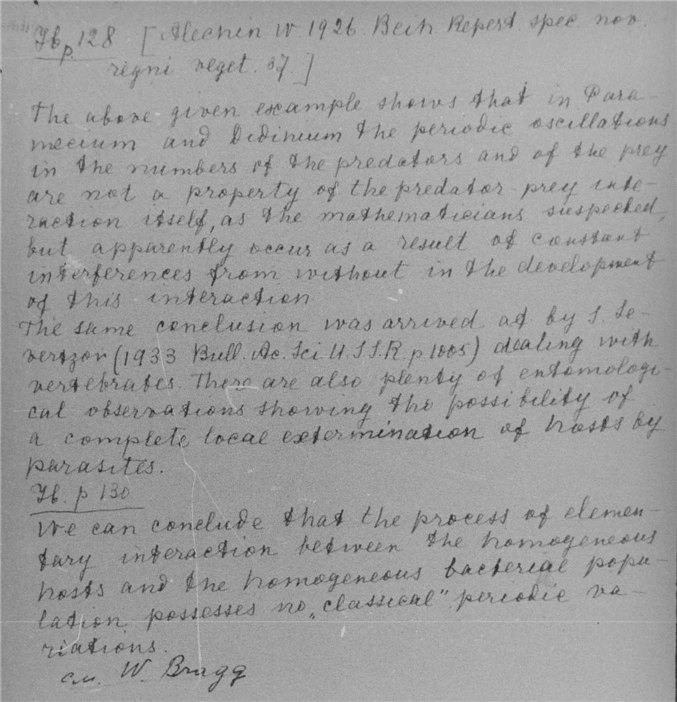 Ib. p. 128 [Alechin W 1926. Beih Repert. spec. nov.
regni veget. 37]
The above given example shows that in Para-
mecium and Didinium the periodic oscillations
in the numbers of the predators and of the prey
are not a property of the predator-prey inte-
raction itself, as the mathematicians suspected,
but apparently occur as a result of constant
interferences from without in the development
of this interaction
The same conclusion was arrived at by S. Se-
vertzov (1933 Bull. Ac. Sci U.S.S.R p 1005) dealing with
vertebrates. There are also plenty of entomologi-
cal observations showing the possibility of
a complete local extermination of hosts by
parasites.
Ib. p 130
We can conclude that the process of elemen-
tary interaction between the homogeneous
hosts and the homogeneous bacterial popu-
lation possesses no „classical" periodic va-
riations.
см. W. Bragg